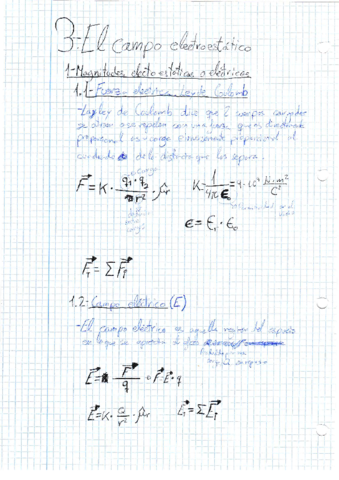 3-El campo electrostático
1-Magnitudes electrostáticas o eléctricas
1.1-Fuerza eléctrica. Ley de Coulomb
-La ley de Coulomb dice que 2 cuerpos cargados
se atraen o se repelen con una fuerza que es directamente
proporcional a su carga e inversamente proporcional al
cuadrado de la distancia que los separa.
F = K · q1·q2 / r² · μr
K = 1 / 4πε = 9·10⁹ N·m² / C²
ε = εr · ε0
FT = Σ Fi
1.2-Campo eléctrico (E)
-El campo eléctrico es aquella región del espacio
en la que se aprecia el efecto
E = F / q o F = E · q
E = K · Q / r² · μr
ET = Σ Ei